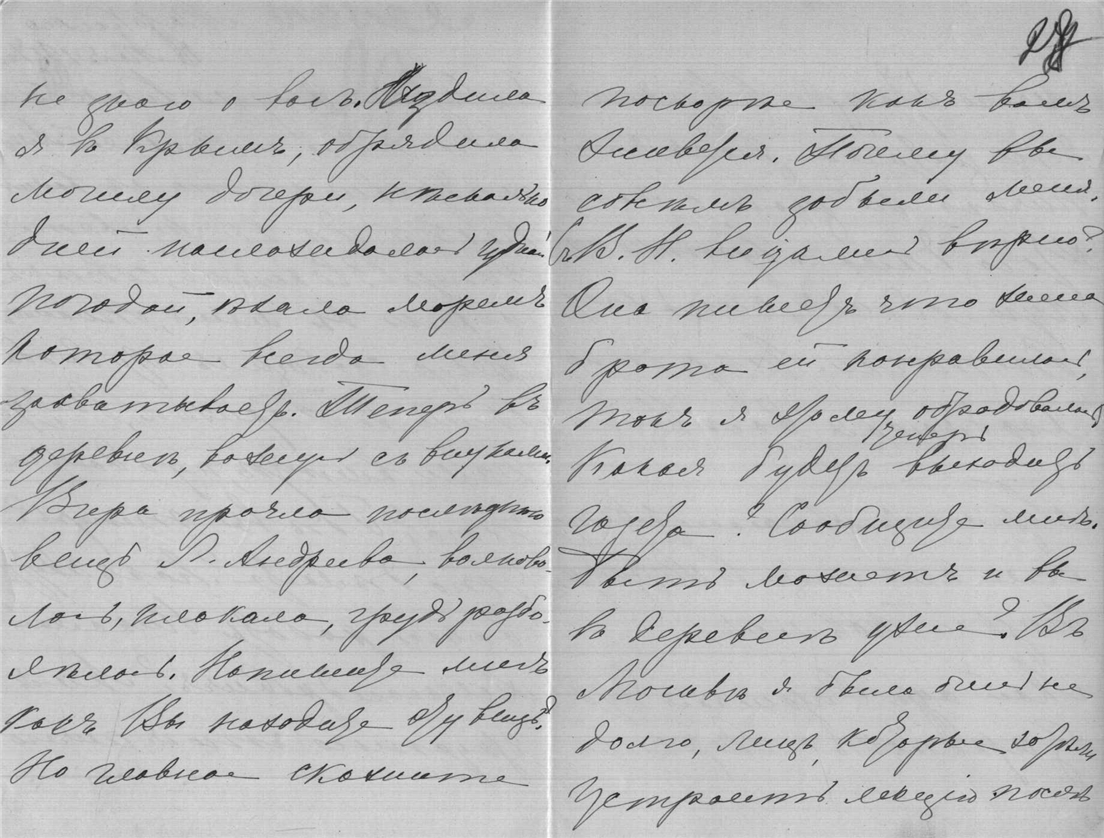 не знаю о васъ. Ѣздила
я въ Крымъ, обрядила
могилу дочери, нѣсколько
дней наслаждалась чудной
погодой, ѣхала моремъ
которое всегда меня
захватываетъ. Теперь въ
деревнѣ, вожусь съ внуками.
Вчера прочла послѣднюю
вещь Л. Андреева, волнова-
лась, плакала, грудь разбо-
лѣлась. Напишите мнѣ
какъ Вы находите эту вещь?
Но главное скажите
27
поскорѣе какъ вамъ
живется. Почему вы
совсѣмъ забыли меня.
Съ В. Н. видались вѣрно?
Она пишетъ что жена
брата ей понравилась,
такъ я этому обрадовалась
теперь
Какая будетъ выходить
газета? Сообщите мнѣ.
Быть можетъ и вы
въ деревнѣ уже? Въ
Москвѣ я была очень не
долго, лицъ, которые хотѣли
устроить лекцію послѣ